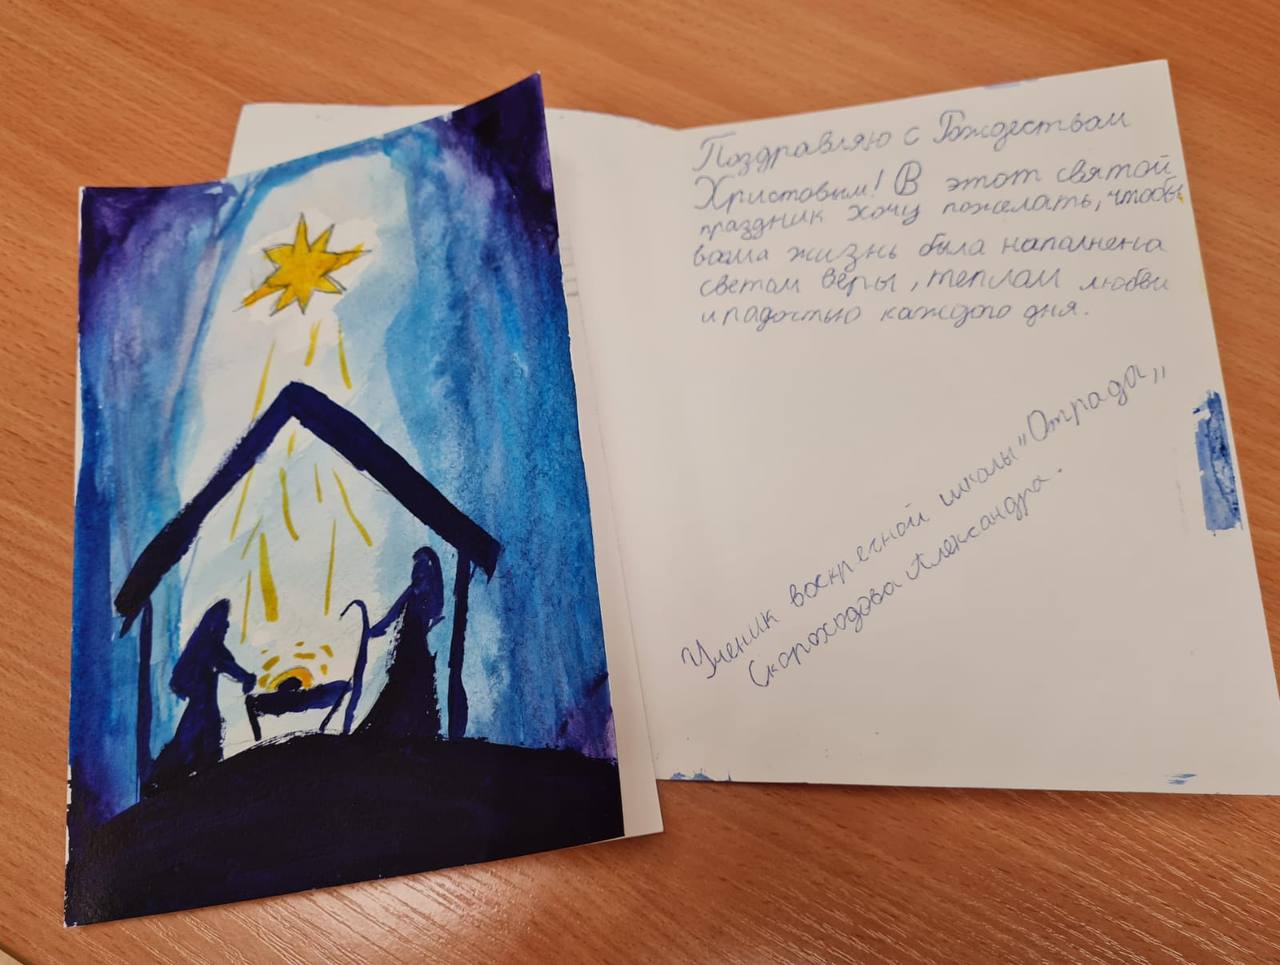 Поздравляю с Рождеством
Христовым! В этот святой
праздник хочу пожелать, чтобы
ваша жизнь была наполнена
светом веры, теплом любви
и радостью каждого дня.
Ученик воскресной школы "Отрада"
Скороходова Александра.